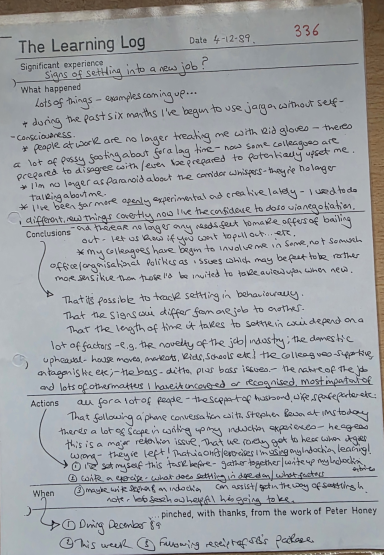 336
The Learning Log
Date 4-12-89.
Significant experience
Signs of settling into a new job?
What happened
Lots of things – examples coming up...
* during the past six months I've begun to use jargon without self-
consciousness.
* people at work are no longer treating me with kid gloves – theres
a lot of pussy footing about for a long time – now some colleagues are
prepared to disagree with/even be prepared to potentially upset me.
* I'm no longer as paranoid about the corridor whispers – they're no longer
talking about me.
* I've been far more openly experimental and creative lately – I used to do
different, new things covertly now I've the confidence to do so via negotiation.
Conclusions – and there are no longer any needs felt to make offers of bailing
out – let us know if you want to pull out... etc.
* my colleagues have begun to involve me in some, not so much
office/organisational politics as issues which may be felt to be rather
more sensitive than those I'd be invited to take a view on when new.
That its possible to track settling in behaviourally.
That the signs will differ from one job to another.
That the length of time it takes to settle in will depend on a
lot of factors – e.g. the novelty of the job/industry; the domestic
upheaval – house moves, markets, kids, schools etc/ the colleagues – supportive,
antagonistic etc; – the boss – ditto, plus boss issues – the nature of the job
and lots of other matters I have it uncovered or recognised, most important of
Actions all for a lot of people – the support of husband, wife, partner etc:
That following a phone conversation with Stephen at IMS today
theres a lot of scope in writing up my induction experiences – he agrees
this is a major retention issue. That we rarely get to hear when it goes
wrong – they've left! That is I'm using my induction learning!
① I've set myself this task before – gather together/write up my induction
entries
② write a exercise – what does settling in depend on/what factors
③ maybe write on induction can assist/get in the way of settling in
When note – but on how helpful its going to be.
...pinched, with thanks, from the work of Peter Honey
① During December 89
② This week ③ Following receipt of package